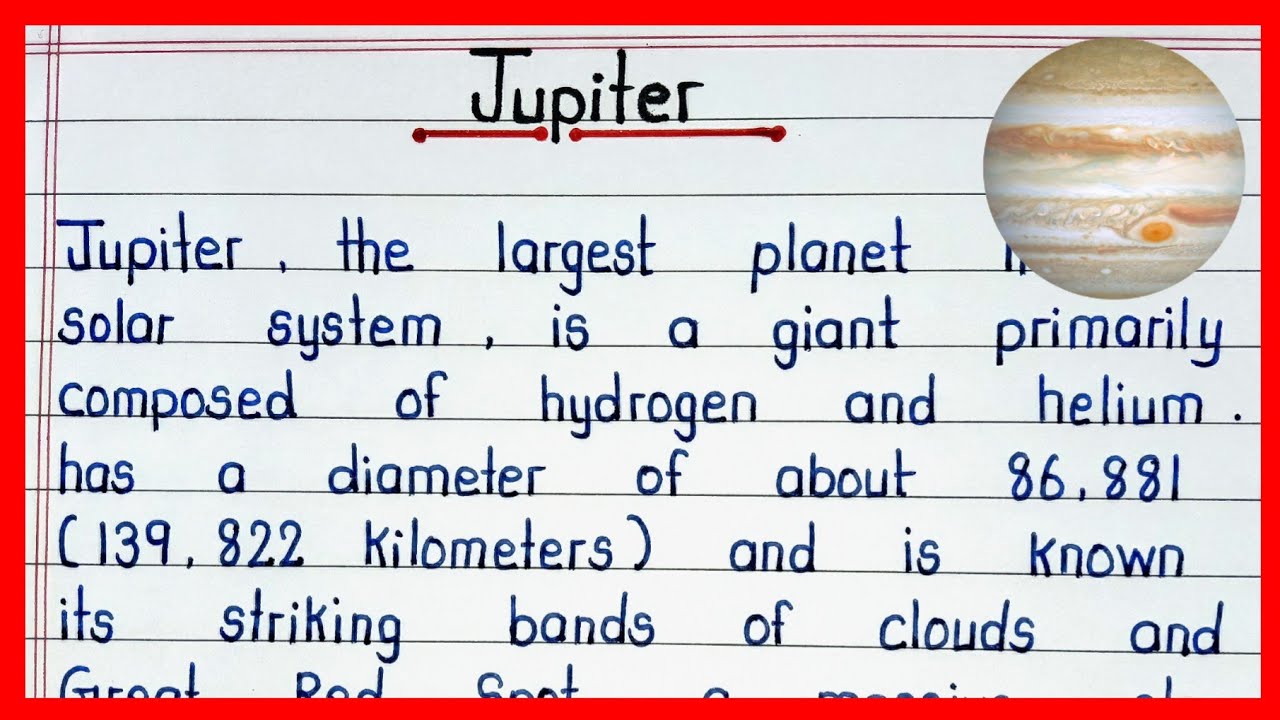 Jupiter
Jupiter, the largest planet
solar system, is a giant primarily
composed of hydrogen and helium.
has a diameter of about 86,881
(139,822 kilometers) and is known
its striking bands of clouds and
Great Red Spot, a massive